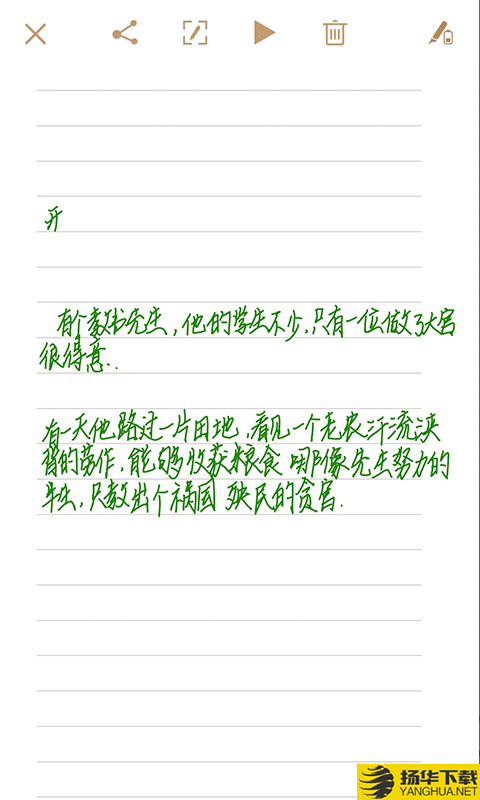 开
有个教书先生,他的学生不少.只有一位做了大官
很得意..
有一天他路过一片田地,看见一个老农汗流浃
背的劳作,能够收获粮食 哪像先生努力的
半生,只教出个祸国 殃民的贪官.
扬华下载
YANGHUA.NET